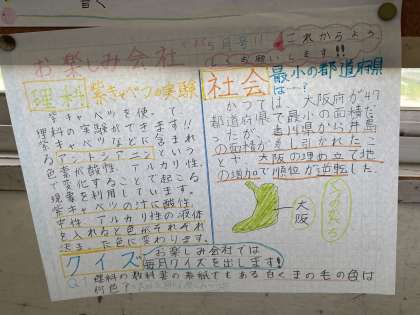 お楽しみ会社
これからよろ
しくお願いします!!
理科 紫キャベツの実験
紫キャベツを使って
理科の実験ができます!!
紫キャベツに含まれ
るアントシアニンという
色素が酸性、アルカリ性、
で変化することで起こる
現象を利用しています。
紫キャベツの汁に酸性、
中性、アルカリ性の液体
を入れると色がそれぞれ
社会 最小の都道府県
は…?
かつては、大阪府が47
都道府県で最小の面積だ
ったが、香川県から井島
の面積が差し引かれたこ
とや、大阪の埋め立て地
の増加で順位が逆転した。
大阪
クイズ
お楽しみ会社では
毎月クイズを出します!
Q.理科の教科書の表紙でもある白くまの毛の色は
何色?